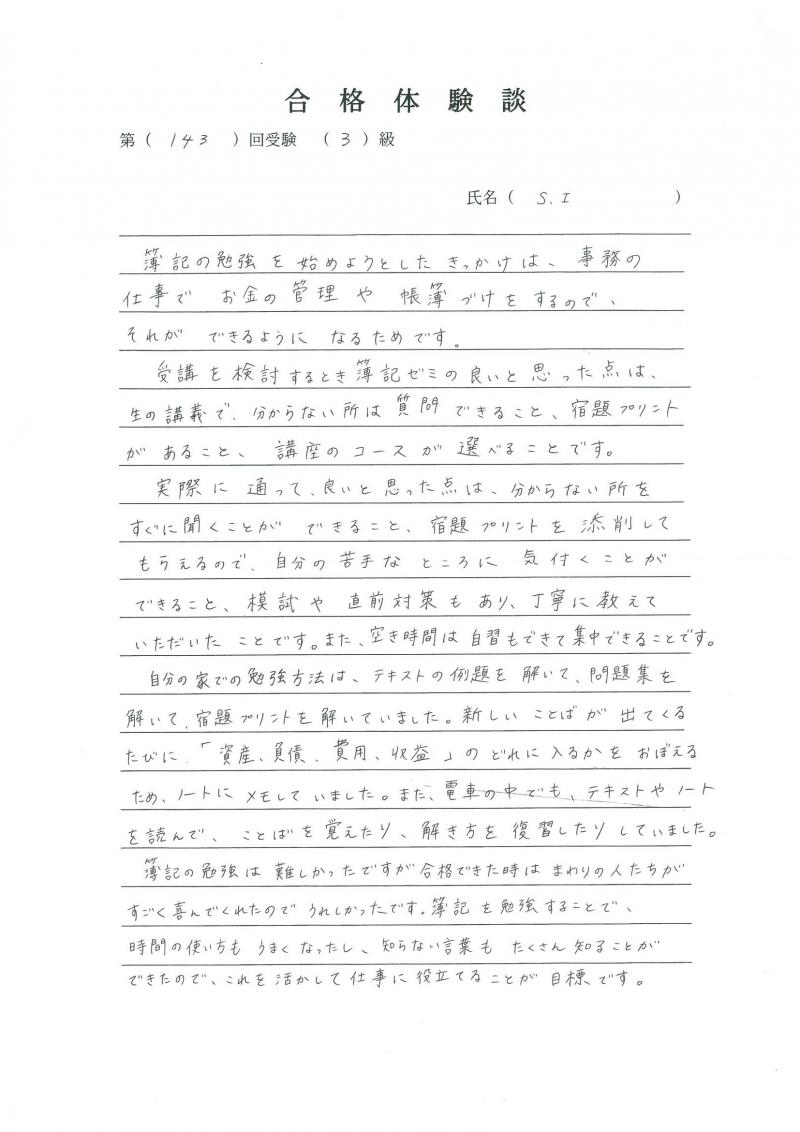 合格体験談
第（ 143 ）回受験 （ 3 ）級
氏名（ S.I ）
簿記の勉強を始めようとしたきっかけは、事務の
仕事で お金の管理や 帳簿づけをするので、
それが できるように なるためです。
受講を検討するとき簿記ゼミの良いと思った点は、
生の講義で、分からない所は質問できること、宿題プリント
があること、講座のコースが選べることです。
実際に通って、良いと思った点は、分からない所を
すぐに聞くことが できること、宿題プリントを添削して
もらえるので、自分の苦手なところに気付くことが
できること、模試や直前対策もあり、丁寧に教えて
いただいたことです。また、空き時間は自習もできて集中できることです。
自分の家での勉強方法は、テキストの例題を解いて、問題集を
解いて、宿題プリントを解いていました。新しいことばが出てくる
たびに、「資産、負債、費用、収益」のどれに入るかをおぼえる
ため、ノートにメモしていました。また、電車の中でも、テキストやノート
を読んで、ことばを覚えたり、解き方を復習したりしていました。
簿記の勉強は難しかったですが合格できた時はまわりの人たちが
すごく喜んでくれたのでうれしかったです。簿記を勉強することで、
時間の使い方もうまくなったし、知らない言葉もたくさん知ることが
できたので、これを活かして仕事に役立てることが目標です。